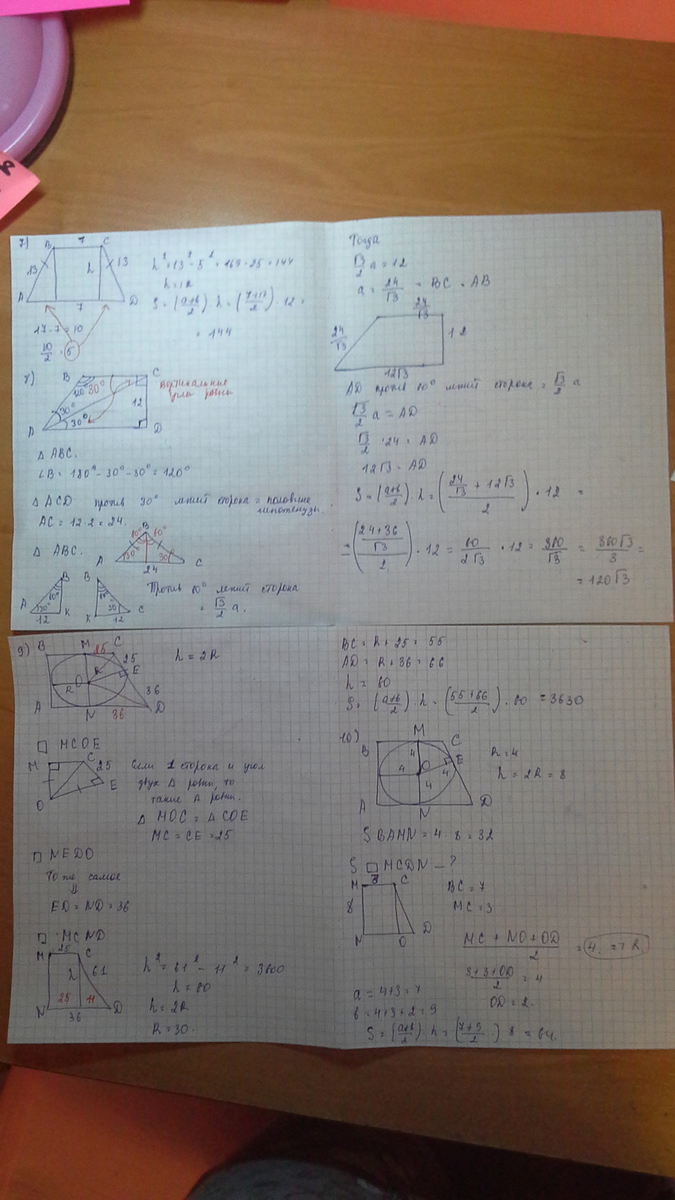 7)
B 7 C
13 h 13
A 7 D
17-7=10
10/2 = 5
h² = 13² - 5² = 169 - 25 = 144
h = 12
S = (a+b/2) · h = (7+17/2) · 12 =
= 144
8)
B C
120° 30°
12
30°
30°
A D
вертикальные
углы равны
△ ABC.
∠B = 180° - 30° - 30° = 120°
△ ACD против 30° лежит сторона = половине
гипотенузы.
AC = 12·2 = 24.
△ ABC.
B
60° 60°
30° 30°
A 24 C
B B
60° 60°
30° 30°
A 12 K K 12 C
Против 60° лежит сторона
= √3/2 a.
Тогда
√3/2 a = 12
a = 24/√3 = BC = AB
24/√3
24/√3 12
12√3
AD против 60° лежит сторона = √3/2 a
√3/2 a = AD
√3/2 · 24 = AD
12√3 = AD
S = (a+b/2) · h = (24/√3 + 12√3 / 2) · 12 =
= (24+36/√3 / 2) · 12 = 60/2√3 · 12 = 360/√3 = 360√3/3 =
= 120√3
9)
B M 25 C
25
E
O R
R 36
A N 36 D
h = 2R
□ MCOE
M C 25
E
O
Если 1 сторона и угол
двух △ равны, то
такие △ равны.
△ MOC = △ COE
MC = CE = 25
□ NEDO
То же самое
⇓
ED = ND = 36
□ MCND
M 25 C
h 61
25 11
N 36 D
h² = 61² - 11² = 3600
h = 60
h = 2R
R = 30.
BC = R + 25 = 55
AD = R + 36 = 66
h = 60
S = (a+b/2) · h = (55+66/2) · 60 = 3630
10)
B M C
4 E
4 O 4
4
A N D
R = 4
h = 2R = 8
S BAMN = 4 · 8 = 32
S □ MCDN - ?
M 3 C
8
N O D
BC = 7
MC = 3
MC + NO + OD / 2 = 4. = R.
3+3+OD / 2 = 4
OD = 2.
a = 4+3 = 7
b = 4+3+2 = 9
S = (a+b/2) · h = (7+9/2) · 8 = 64.